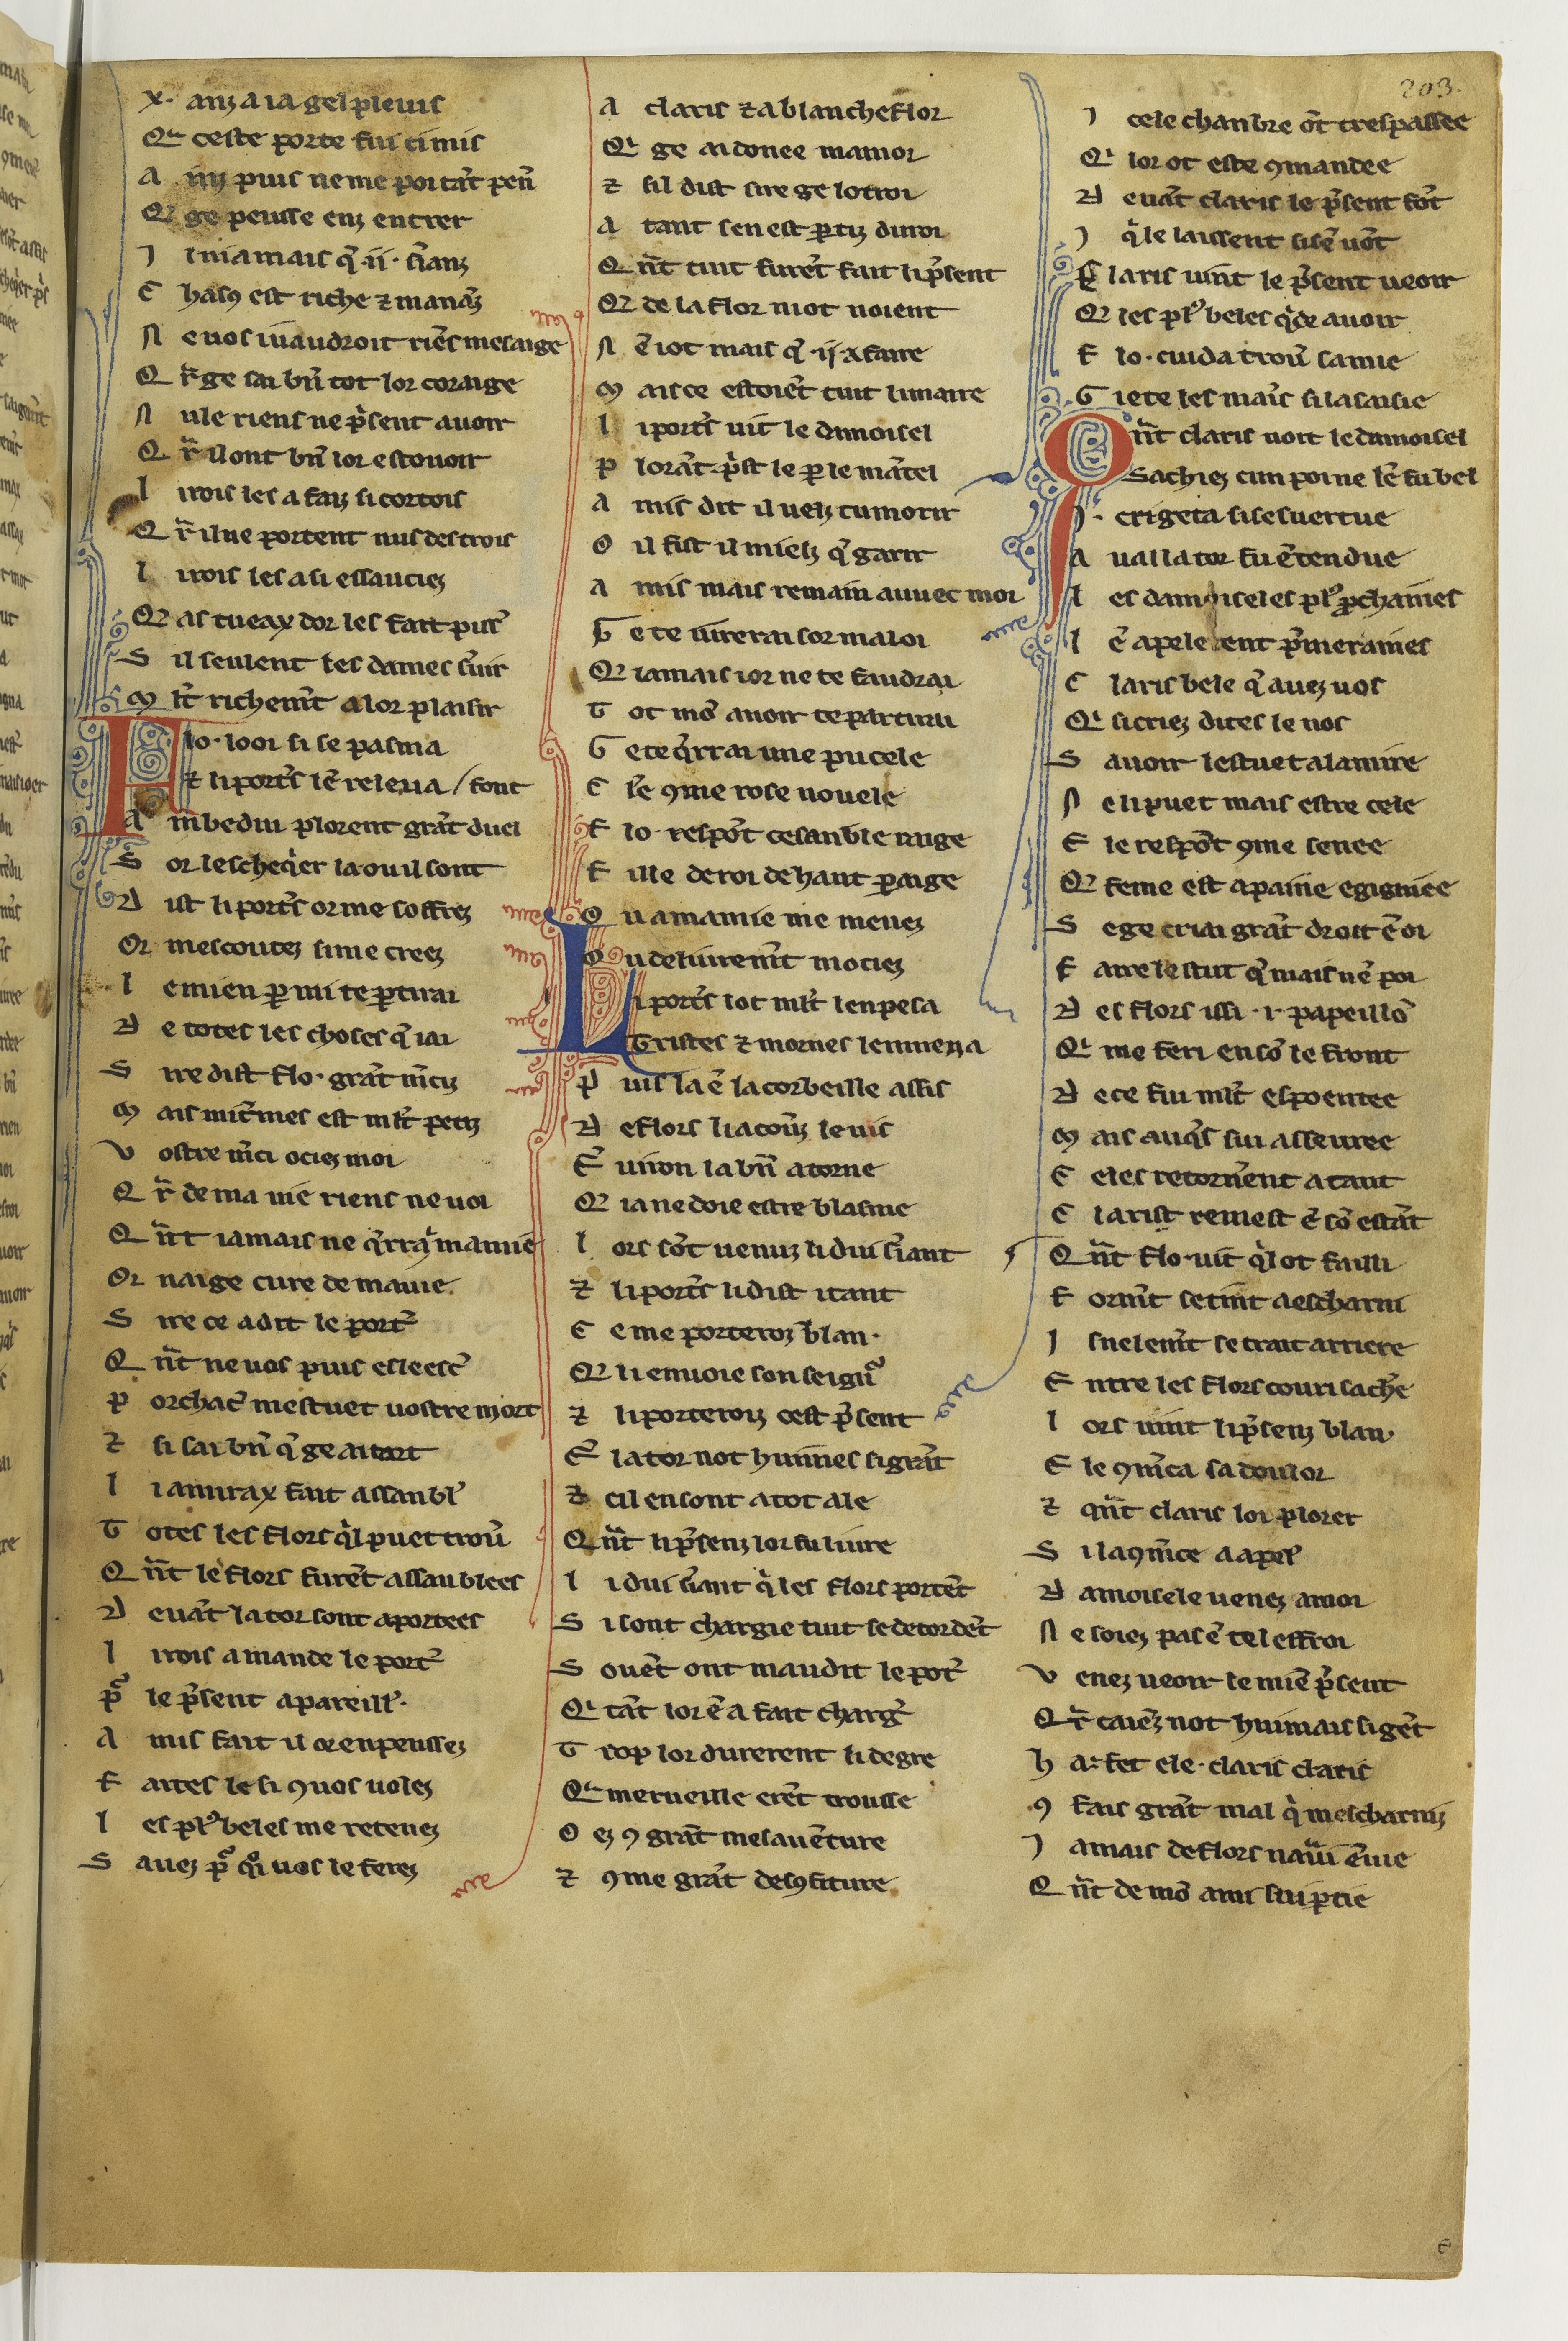 203.
x. anz a ia gel pleuis
Q̄ ceste porte fui ci mis
A inz puis ne me poi tāt pen̄
Q̄ ge peusse enz entrer
I l ni a mais q̄ .ii. s̄ianz
C hasꝯ est riche ⁊ manāz
N e uos i uaudroit riēs mesaige
Q r̄ ge sai bn̄ tot lor coraige
N ule riens ne p̄sent auoir
Q r̄ il ont bn̄ lor estouoir
L i rois les a faiz si cortois
Q r̄ il ne portent nus des trois
L i rois les a si essauciez
Q as tueax dor les fait pisr̄
S il seulent les dames s̄uir
M lt̄ richem̄t a lor plaisir
F lo. looi si se pasma
⁊ li port̄s lē releua / font
A m̄bedui plorent grāt duel
S or lescheq̄er la ou il sont
D ist li port̄s or me soffrez
Or mescoutez si me creez
L e mien par mi te partirai
D e totes les choses q̄ iai
S ire dist flo. grāt m̄ciz
M ais mit̄mes est mlt̄ petiz
V ostre m̄ci ociez moi
Q r̄ de ma uie riens ne uoi
Q n̄t iamais ne q̄rrai mamie
Or naige cure de ma uie.
S ire ce a dit le port̄
Q n̄t ne uos puis esleesc̄
P orchac̄ mestuet uostre mort
⁊ si sai bn̄ q̄ ge ai tort
L i amirax fait assanbl̄
T otes les flors q̄l puet troū
Q n̄t le flors furēt assanblees
D euāt la tor sont aportees
L i rois a mande le port̄
P̄ le p̄sent apareill̄.
A mis fait il or enpenssez
F aites le si ꝯ uos uolez
L es pl᷒ beles me retenez
S auez p̄ q̄i uos le ferez
A claris ⁊ a blancheflor
Q̄ ge ai donee mamor
⁊ sil dist sire ge lotroi
A tant sen est partiz du roi
Q n̄t tuit furēt fait li p̄sent
Q̄ de la flor ni ot noient
N ē i ot mais q̄ .ii. a faire
M ais ce estoiēt tuit li maire
L i port̄s uit le dmoisel
P lorāt. p̄st le par le mātel
A mis dit il uelz tu morir
O il fist il mielz q̄ garir
A mis mais remain auuec moi
G e te iurerai sor ma loi
Q̄ iamais ior ne te faudrai
T ot mō auoir te partirai
G e te q̄rrai une pucele
C lē ꝯme rose nouele
F lo. respōt ce sanble rage
F ille de roi de haut parage
O u a mamie me menez
O u deliurem̄t mociez
L i port̄s lot mlt̄ len pesa
Tristes ⁊ mornes len mena
P uis la ē la corbeille assis
D e flors li a couūz le uis
E nuiron la bn̄ atorne
Q̄ ia ne doie estre blasme
L ors sōt uenuz li dui s̄iant
⁊ li port̄s li dist itant
C e me porteroiz blan.
Q̄ li enuoie son seignr̄
⁊ li porteroiz cest p̄sent
E̅ la tor not huimes si grāt
⁊ cil en sont a tot ale
Q n̄t li p̄senz lor fu liure
L i dui s̄iant q̄ les flors portēt
S i sont chargie tuit se detordēt
S ouēt ont maudit le pot̄
Q̄ tāt lor ē a fait charḡ
T rop lor durerent li degre
Q̄ merueille erēt trousse
O ez ꝯ grāt mesauēture
⁊ ꝯme grāt desꝯfiture
I cele chanbre ōt trespassee
Q̄ lor ot este ꝯmandee
D euāt claris le p̄sent fōt
I q̄ le laissent si sē uōt
C laris uint le p̄sent ueoir
Q̄ les pl᷒ beles q̄de auoir
F lo. cuida trou̅ samie
G iete les maīs si la saisie
Q n̄t claris uoit le dmoisel
Sachiez cun poi ne lē fu bel
I. cri geta si sesuertue
A ual la tor fu ētendue
L es damoiseles pl᷒ ꝓchaines
L ē apelerent p̄meraines
C laris bele q̄ auez uos
Q̄ si criez dites le nos
S auoir lestuet a la mire
N e li puet mais estre cele
E le respōt ꝯme senee
Q̄ feme est a paine egignee
S e ge criai grāt droit ē oi
F aire lestut q̄ mais nē poi
D es flors issi .i. papeillō
Q̄ me feri en sō le front
D e ce fui mlt̄ espoentee
M ais auq̄s sui asseuree
E eles retorn̄ent atant
C larist remest ē sō estāt
Q n̄t flo. uit q̄l ot failli
F orm̄t se tint a escharni
I snelem̄t se trait arriere
E ntre les flors couri sachē
L ors uint li p̄senz blan.
E le ꝯm̄ca sa doulor
⁊ qn̄t claris loi plorer
S i la ꝯm̄ce a apel̄
D amoisele uenez a moi
N e soiez pas ē tel effroi
V enez ueoir le miē p̄sent
Q r̄ caiēz not huimais si gēt
H a. fet ele. claris claris
ꝯ fais grāt mal q̄ mescharniz
I amais de flors naurai ēuie
Q n̄t de mō ami sui ꝑtie